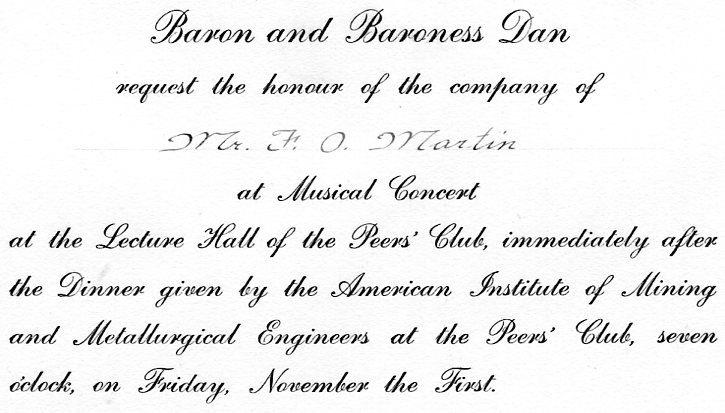 Baron and Baroness Dan
request the honour of the company of
Mr. F. O. Martin
at Musical Concert
at the Lecture Hall of the Peers' Club, immediately after
the Dinner given by the American Institute of Mining
and Metallurgical Engineers at the Peers' Club, seven
o'clock, on Friday, November the First.